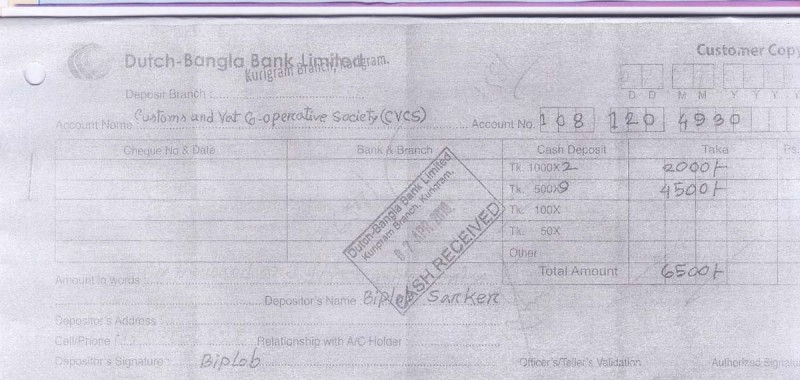 Customer Copy
Dutch-Bangla Bank Limited
Kurigram Branch, Kurigram.
Deposit Branch :
D D M M Y Y Y Y
Account Name : Customs and Vat Co-operative Society (CVCS) Account No. 108 120 4930
Cheque No & Date Bank & Branch Cash Deposit Taka Ps.
Tk. 1000X 2 2000/-
Tk. 500X 9 4500/-
Tk. 100X
Tk. 50X
Other
Total Amount 6500/-
Dutch-Bangla Bank Limited
Kurigram Branch, Kurigram.
CASH RECEIVED
Amount in words :
Depositor's Name : Biplob Sarker
Depositor's Address :
Cell/Phone : Relationship with A/C Holder :
Depositor's Signature : Biplob Officer's/Teller's Validation Authorized Signature